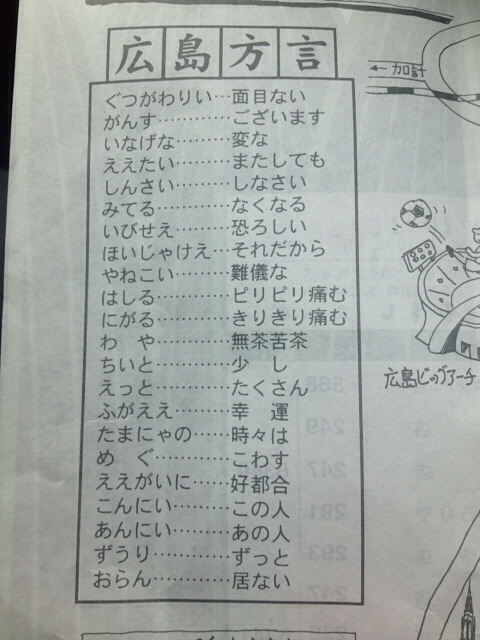 広島方言
ぐつがわりい…面目ない
がんす…………ございます
いなげな………変な
ええたい………またしても
しんさい………しなさい
みてる…………なくなる
いびせえ………恐ろしい
ほいじゃけえ…それだから
やねこい………難儀な
はしる…………ピリピリ痛む
にがる…………きりきり痛む
わ　や…………無茶苦茶
ちいと…………少　し
えっと…………たくさん
ふがええ………幸　運
たまにゃの……時々は
め　ぐ…………こわす
ええがいに……好都合
こんにい………この人
あんにい………あの人
ずうり…………ずっと
おらん…………居ない
←加計
広島ビッグアーチ